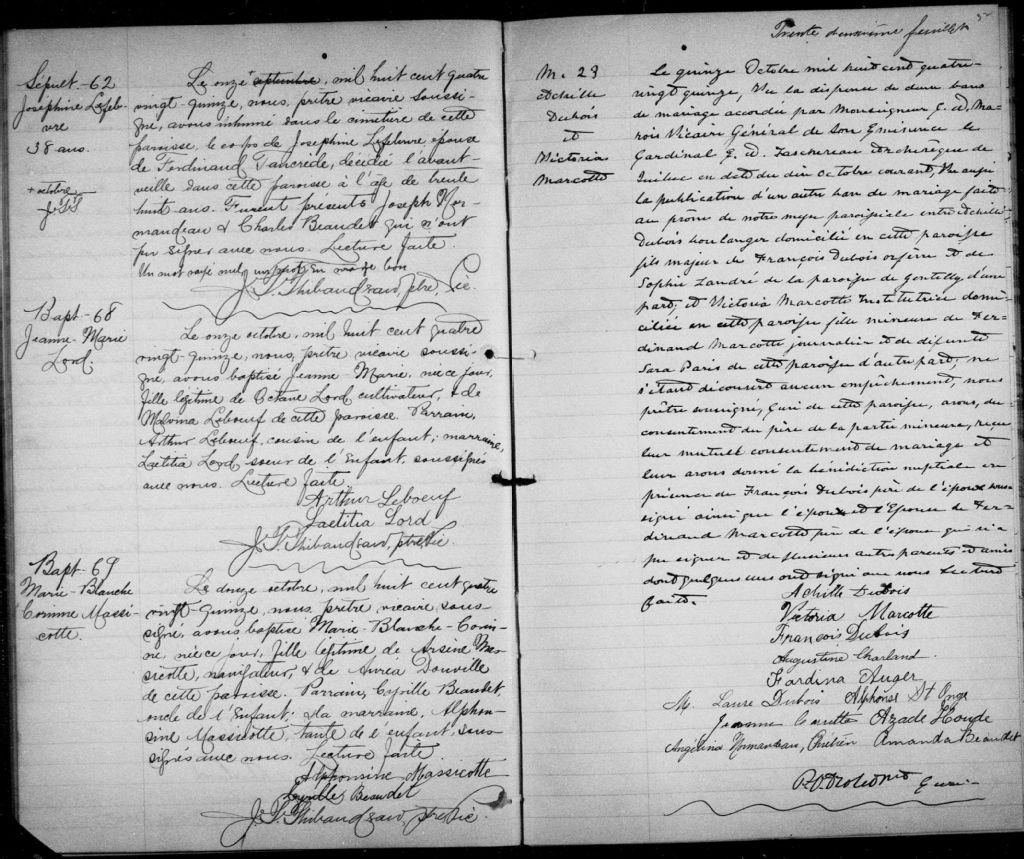 Sépult - 62
Joséphine Lefeb-
vre
38 ans.
+ octobre
Le onze septembre, mil huit cent quatre
vingt-quinze, nous, prêtre vicaire soussi-
gné, avons inhumé dans le cimetière de cette
paroisse, le corps de Joséphine Lefebvre, épouse
de Ferdinand Tancrède, décédée l'avant-
veille dans cette paroisse à l'âge de trente
huit ans. Furent présents Joseph Nor-
mandeau & Charles Beaudet qui n'ont
pu signer avec nous. Lecture faite.
Un mot rayé nul, un mot en bon
J. Thibaudeau, ptre, Vic.
Bapt - 68
Jeanne-Marie
Lord.
Le onze octobre, mil huit cent quatre
vingt-quinze, nous, prêtre vicaire soussi-
gné, avons baptisé Jeanne-Marie, née ce jour,
fille légitime de Octave Lord cultivateur, & de
Malvina Leboeuf de cette paroisse. Parrain,
Arthur Leboeuf, cousin de l'enfant; marraine,
Laetitia Lord soeur de l'Enfant, soussignés
avec nous. Lecture faite.
Arthur Leboeuf
Laetitia Lord
J. Thibaudeau, ptre Vic.
Bapt - 69
Marie-Blanche
Corinne Massi-
cotte.
Le douze octobre, mil huit cent quatre
vingt-quinze, nous, prêtre vicaire sous-
signé, avons baptisé Marie-Blanche-Corin-
ne, née ce jour, fille légitime de Arsène Mas-
sicotte, navigateur, & de Auréa Douville
de cette paroisse. Parrain, Cyrille Beaudet
oncle de l'Enfant; & la marraine, Alphon-
sine Massicotte, tante de l'enfant, sous-
signés avec nous. Lecture faite.
Alphonsine Massicotte
Cyrille Beaudet
J. Thibaudeau, ptre Vic.
Trente deuxième feuillet
M. 23
Achille
Dubois
et
Victoria
Marcotte
Le quinze Octobre mil huit cent quatre-
vingt quinze, Vu la dispense de deux bans
de mariage accordée par Monseigneur C. A. Ma-
rois Vicaire Général de Son Eminence le
Cardinal E. A. Taschereau Archevêque de
Québec en date du dix Octobre courant, Vu aussi
la publication d'un autre ban de mariage faite
au prône de notre messe paroissiale entre Achille
Dubois boulanger domicilié en cette paroisse
fils majeur de François Dubois orfèvre et de
Sophie Landré de la paroisse de Gentilly, d'une
part; et Victoria Marcotte Institutrice domi-
ciliée en cette paroisse fille mineure de Fer-
dinand Marcotte journalier et de défunte
Sara Paris de cette paroisse d'autre part; ne
s'étant découvert aucun empêchement, nous
prêtre soussigné, Curé de cette paroisse, avons, du
consentement du père de la partie mineure, reçu
leur mutuel consentement de mariage et
leur avons donné la bénédiction nuptiale en
présence de François Dubois père de l'époux sous-
signé ainsi que l'époux et l'Epouse de Fer-
dinand Marcotte père de l'épouse qui n'a
pu signer et de plusieurs autres parents et amis
dont quelques uns ont signé avec nous Lecture
faite.
Achille Dubois
Victoria Marcotte
François Dubois
Augustine Charland.
Fardina Auger
M. Laure Dubois Alphonse St Onge
Jeanne Azade Houde
Angélina Normandeau, Amanda Beaudet
Curé